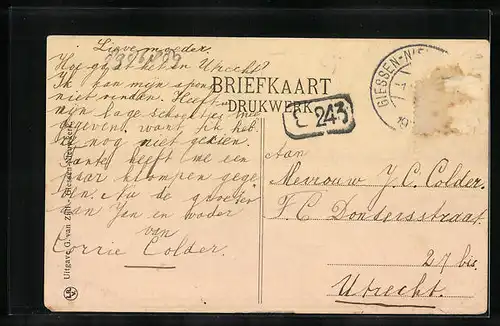 Lieve moeder.
Hoe gaat het in Utrecht?
Ik kan mijn
niet vinden. Heeft
mijn lage schoentjes mee
gegeven, want ik heb
ze nog niet gezien.
Tante heeft me een
paar klompen gege
ven. Nu de groeten
aan Jan en vader
van
Corrie Colder.
BRIEFKAART
DRUKWERK
L 243
GIESSEN-NI
Aan
Mevrouw J. C. Colder.
F. C. Dondersstraat
27 bis
Utrecht.
Uitgave G. van Zijll,